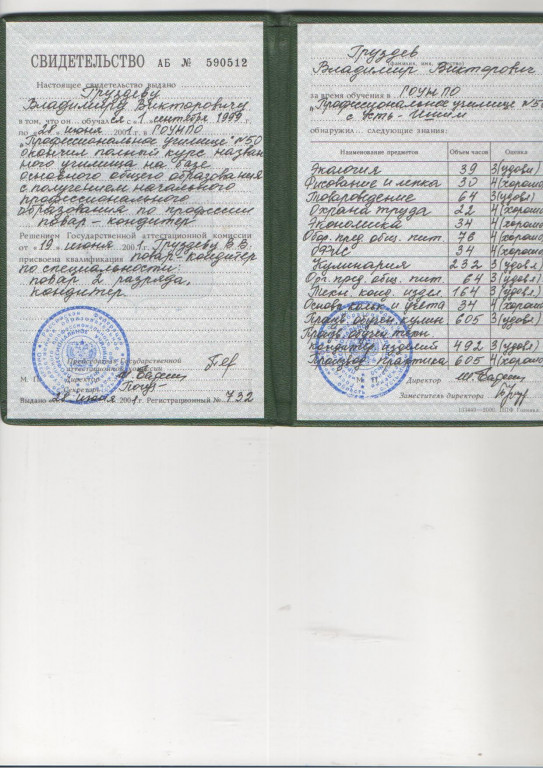 СВИДЕТЕЛЬСТВО АБ № 590512
Настоящее свидетельство выдано
Груздеву
Владимиру Викторовичу
в том, что он обучался с 1 сентября 1999 г.
по «28» июня 2001 г. в ГОУНПО
„Профессиональное училище" №50
окончил полный курс назван
ного училища на базе
основного общего образования
с получением начального
профессионального
образования по профессии
повар-кондитер
Решением Государственной аттестационной комиссии
от «19» июня 2001 г. Груздеву В.В.
присвоена квалификация повар-кондитер
по специальности:
повар 2 разряда,
кондитер.
Председатель Государственной
аттестационной комиссии
М. П. Директор
Секретарь
Выдано 28 июня 2001 г. Регистрационный № 732
Груздев
(фамилия, имя, отчество)
Владимир Викторович
за время обучения в ГОУНПО
„Профессиональное училище №50
с Усть-Ишим
обнаружил следующие знания:
Наименование предметов Объем часов Оценка
Экология 39 3(удовл)
Рисование и лепка 30 4(хорошо
Товароведение 64 3(удовл)
Охрана труда 22 4(хорошо
Экономика 34 4(хорошо
Обор. пред. общ. пит. 78 4(хорошо
ОФЧС 34 4(хорошо
Кулинария 232 3(удовл
Орг. пред. общ. пит. 64 3(удовл
Техн. конд. издел 164 3(удовл)
Основы кальк и учета 34 4(хорошо
Произв. обучен. кулин 605 3(удовл)
Произв. обучен техн.
кондитер. изделий 492 3(удовл)
Производ. практика 605 4(хорошо
М. П. Директор
Заместитель директора